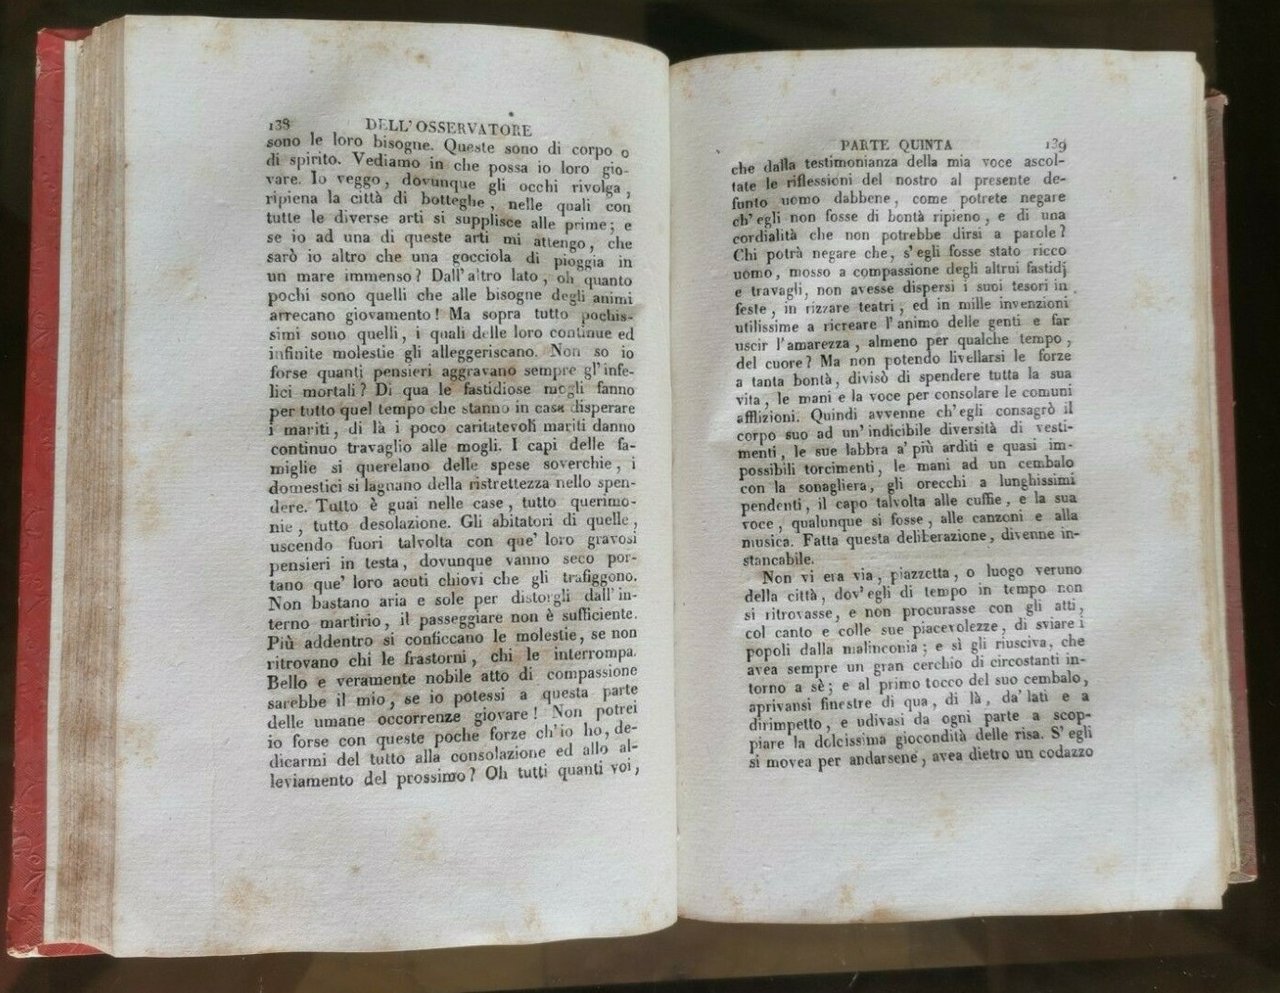 138 DELL'OSSERVATORE
sono le loro bisogne. Queste sono di corpo o
di spirito. Vediamo in che possa io loro gio-
vare. Io veggo, dovunque gli occhi rivolga,
ripiena la città di botteghe, nelle quali con
tutte le diverse arti si supplisce alle prime; e
se io ad una di queste arti mi attengo, che
sarò io altro che una gocciola di pioggia in
un mare immenso? Dall'altro lato, oh quanto
pochi sono quelli che alle bisogne degli animi
arrecano giovamento! Ma sopra tutto pochis-
simi sono quelli, i quali delle loro continue ed
infinite molestie gli alleggeriscano. Non so io
forse quanti pensieri aggravano sempre gl'infe-
lici mortali? Di qua le fastidiose mogli fanno
per tutto quel tempo che stanno in casa disperare
i mariti, di là i poco caritatevoli mariti danno
continuo travaglio alle mogli. I capi delle fa-
miglie si querelano delle spese soverchie, i
domestici si lagnano della ristrettezza nello spen-
dere. Tutto è guai nelle case, tutto querimo-
nie, tutto desolazione. Gli abitatori di quelle,
uscendo fuori talvolta con que' loro gravosi
pensieri in testa, dovunque vanno seco por-
tano que' loro acuti chiovi che gli trafiggono.
Non bastano aria e sole per distorgli dall'in-
terno martirio, il passeggiare non è sufficiente.
Più addentro si conficcano le molestie, se non
ritrovano chi le frastorni, chi le interrompa.
Bello e veramente nobile atto di compassione
sarebbe il mio, se io potessi a questa parte
delle umane occorrenze giovare! Non potrei
io forse con queste poche forze ch'io ho, de-
dicarmi del tutto alla consolazione ed allo al-
leviamento del prossimo? Oh tutti quanti voi,
PARTE QUINTA 139
che dalla testimonianza della mia voce ascol-
tate le riflessioni del nostro al presente de-
funto uomo dabbene, come potrete negare
ch'egli non fosse di bontà ripieno, e di una
cordialità che non potrebbe dirsi a parole?
Chi potrà negare che, s'egli fosse stato ricco
uomo, mosso a compassione degli altrui fastidj
e travagli, non avesse dispersi i suoi tesori in
feste, in rizzare teatri, ed in mille invenzioni
utilissime a ricreare l'animo delle genti e far
uscir l'amarezza, almeno per qualche tempo,
del cuore? Ma non potendo livellarsi le forze
a tanta bontà, divisò di spendere tutta la sua
vita, le mani e la voce per consolare le comuni
afflizioni. Quindi avvenne ch'egli consagrò il
corpo suo ad un'indicibile diversità di vesti-
menti, le sue labbra a' più arditi e quasi im-
possibili torcimenti, le mani ad un cembalo
con la sonagliera, gli orecchi a lunghissimi
pendenti, il capo talvolta alle cuffie, e la sua
voce, qualunque si fosse, alle canzoni e alla
musica. Fatta questa deliberazione, divenne in-
stancabile.
Non vi era via, piazzetta, o luogo veruno
della città, dov'egli di tempo in tempo non
si ritrovasse, e non procurasse con gli atti,
col canto e colle sue piacevolezze, di sviare i
popoli dalla malinconia; e sì gli riusciva, che
avea sempre un gran cerchio di circostanti in-
torno a sè; e al primo tocco del suo cembalo,
aprivansi finestre di qua, di là, da' lati e a
dirimpetto, e udivasi da ogni parte a scop-
piare la dolcissima giocondità delle risa. S'egli
si movea per andarsene, avea dietro un codazzo